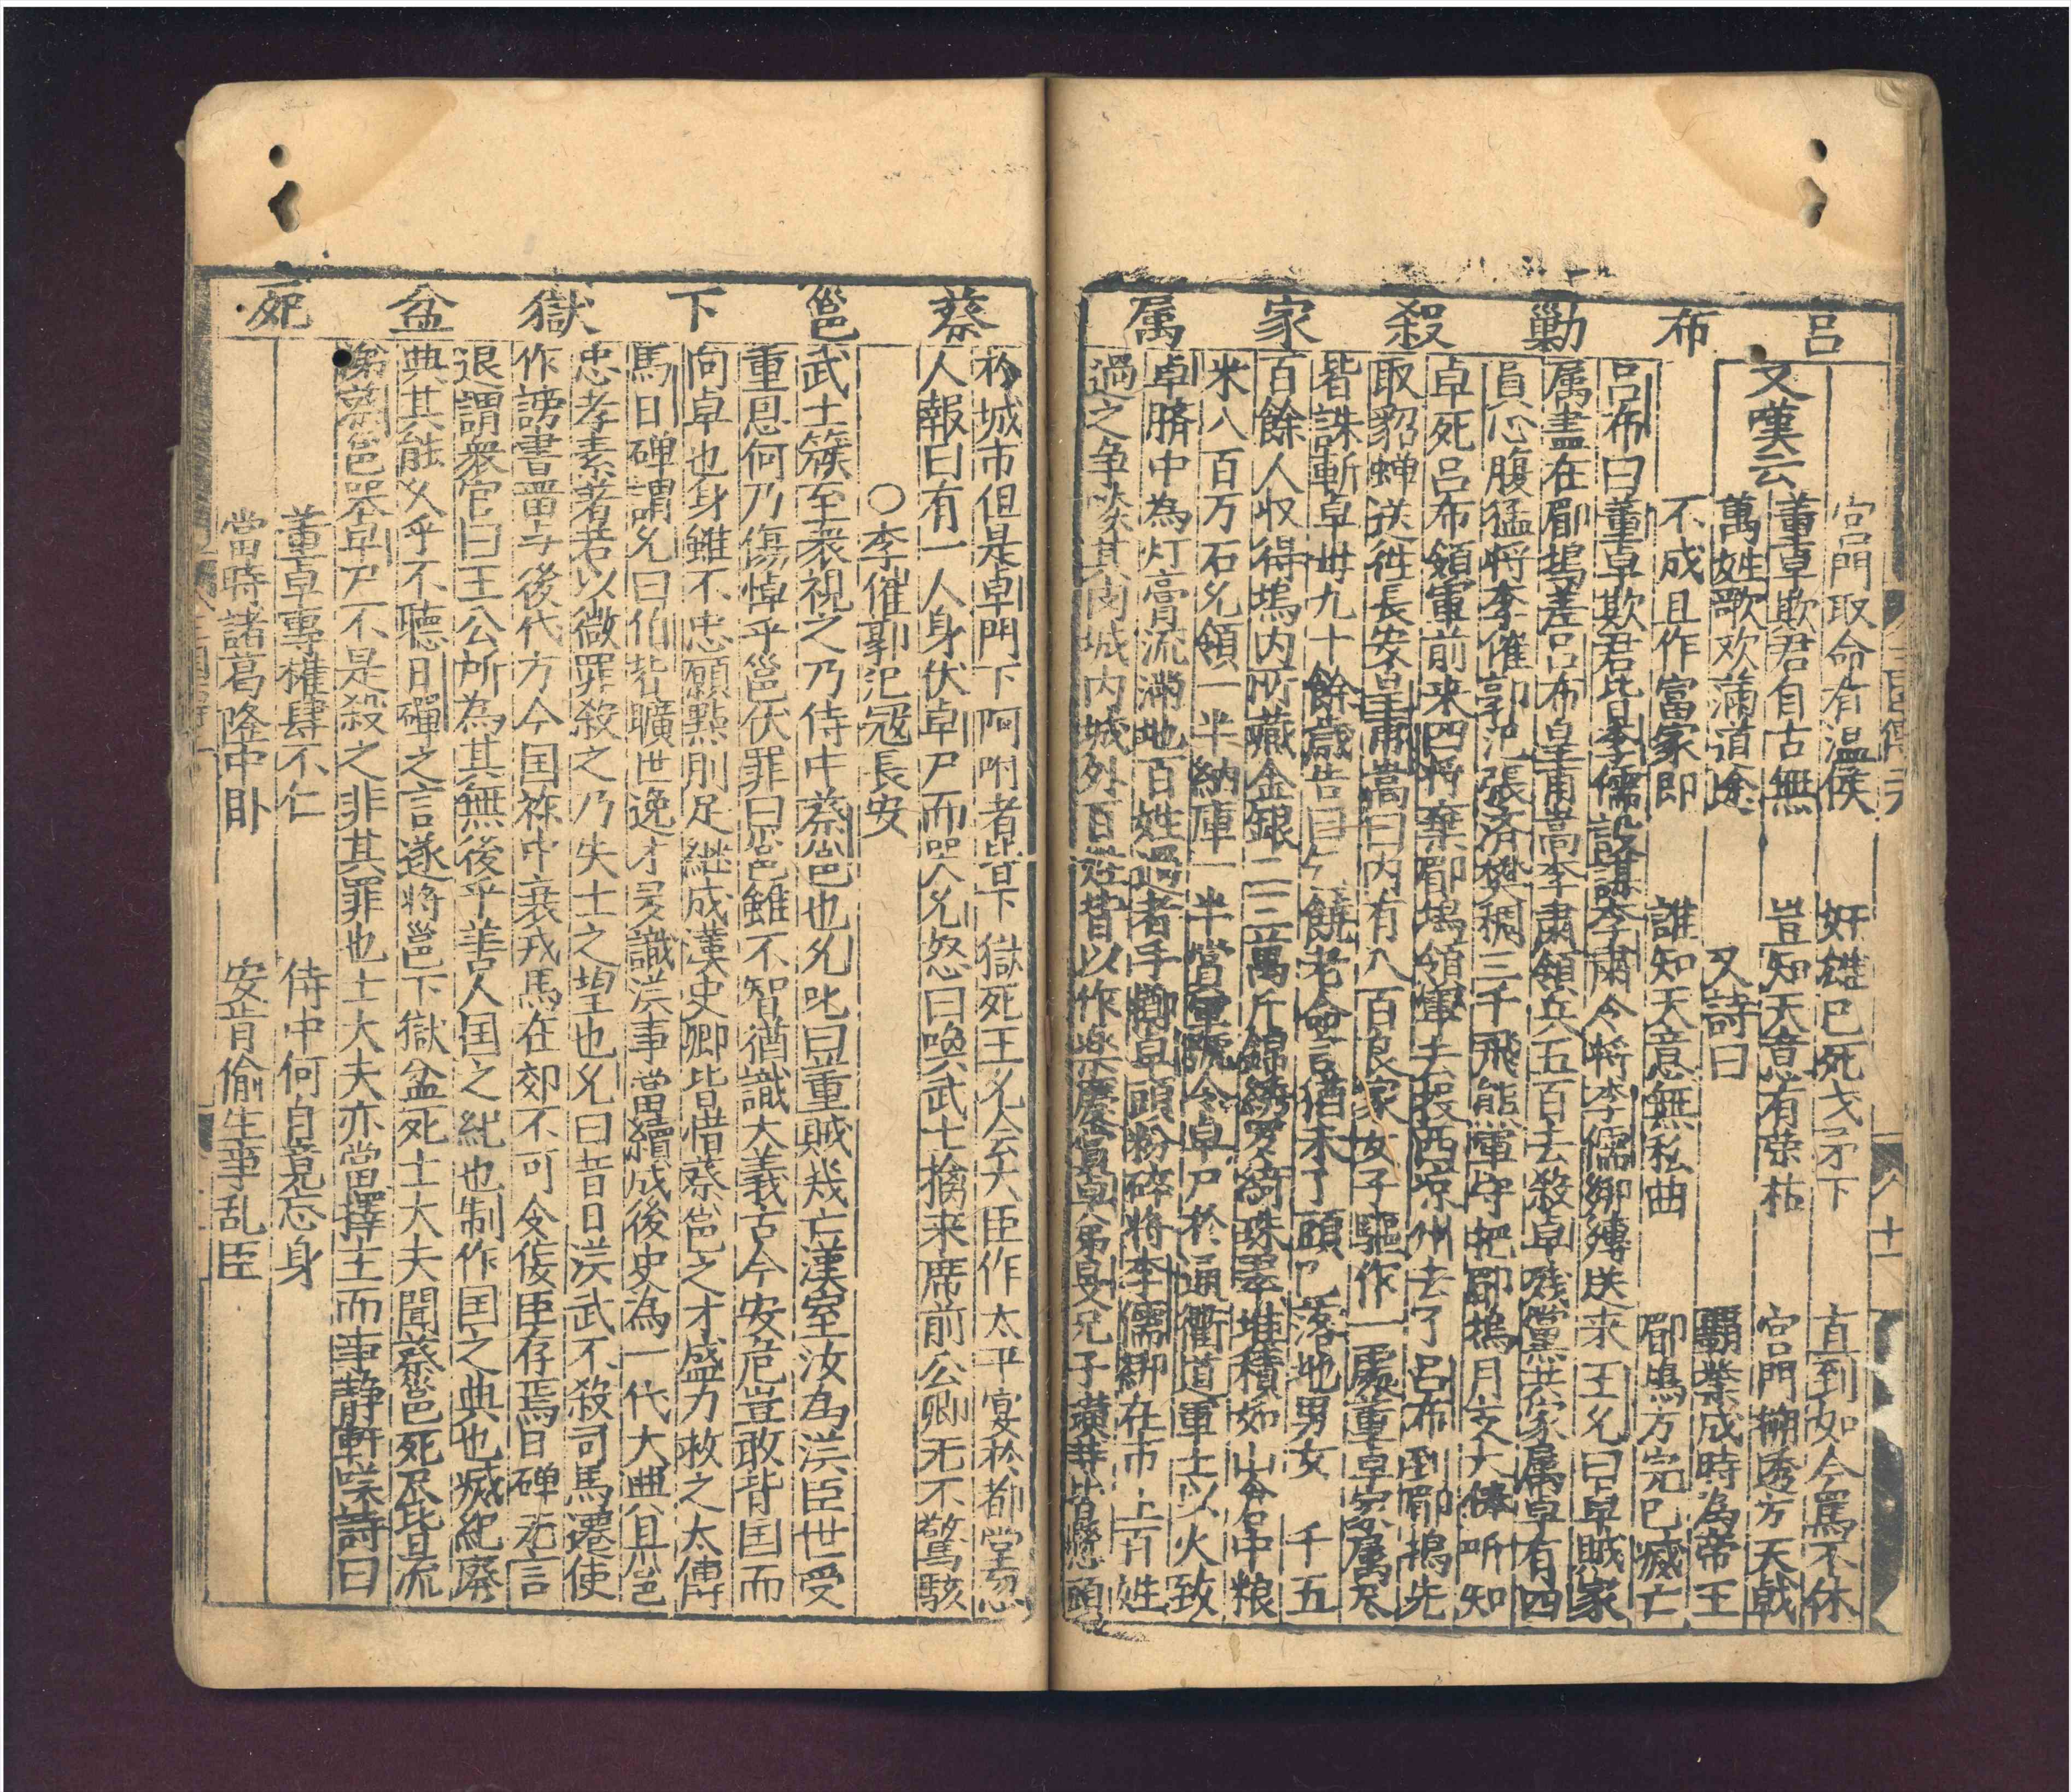 吕布勦殺家属
宫門取命有温侯 奸雄已死戈矛下 直到如今罵不休
又嘆云 董卓欺君自古無 豈知天意有荣枯 宫門搠透方天戟
萬姓歌欢满道途 又詩曰 覇業成時為帝王
不成且作富家郎 誰知天意無私曲 郿塢方完已滅亡
吕布曰董卓欺君皆李儒設謀李肅今将李儒綁縳送来王允曰卓賊家
属盡在郿塢差吕布皇甫嵩李肃領兵五百去殺卓残黨共家属卓有四
員心腹猛将李傕郭汜張济樊稠三千飛熊軍守把郿塢月支大俸听知
卓死吕布領軍前来四将棄郿塢領軍去投西凉州去了吕布到郿塢先
取貂蝉送徃長安皇甫嵩曰内有八百良家女子驅作一處董卓宗属尽
皆誅斬卓母九十餘歲告曰乞饒老命言猶未了頭已落地男女 千五
百餘人収得塢内所藏金銀二三萬斤錦綉罗綺珠翠堆積如山倉中粮
米八百万石允領一半納庫一半賞軍號令卓尸於通衢道軍士以火致
卓臍中為灯膏流满地百姓過者手擲卓頭粉碎将李儒綁在市上百姓
過之争啖其肉城内城外百姓皆以作楽慶賀卓弟旻兄子璜并皆懸頭
蔡邕下獄盆死
於城市但是卓門下阿附者皆下獄死王允会大臣作太平宴於都堂忽
人報曰有一人身伏卓尸而哭允怒曰喚武士擒来席前公卿无不驚駭
○李傕郭汜冦長安
武士簇至衆視之乃侍中蔡邕也允叱曰董賊幾亡漢室汝為漢臣世受
重恩何乃傷悼乎邕伏罪曰邕雖不智猶識大義古今安危豈敢背国而
向卓也身雖不忠願黥刖足継成漢史卿皆惜蔡邕之才盛力救之太傅
馬日磾謂允曰伯喈曠世逸才多識漢事當續成後史為一代大典且邕
忠孝素著若以微罪殺之乃失士之望也允曰昔日漢武不殺司馬遷使
作謗書畱与後代方今国祚中衰戎馬在郊不可令佞臣存焉日磾无言
退謂衆官曰王公所為其無後乎善人国之紀也制作国之典也滅紀廢
典其能乆乎不聴日磾之言遂将邕下獄盆死士大夫聞蔡邕死尽皆流
涕蔡邕哭卓尸不是殺之非其罪也士大夫亦當擇主而事静軒咲詩曰
董卓專權肆不仁 侍中何自竟忘身
當時諸葛隆中卧 安肯偷生事乱臣